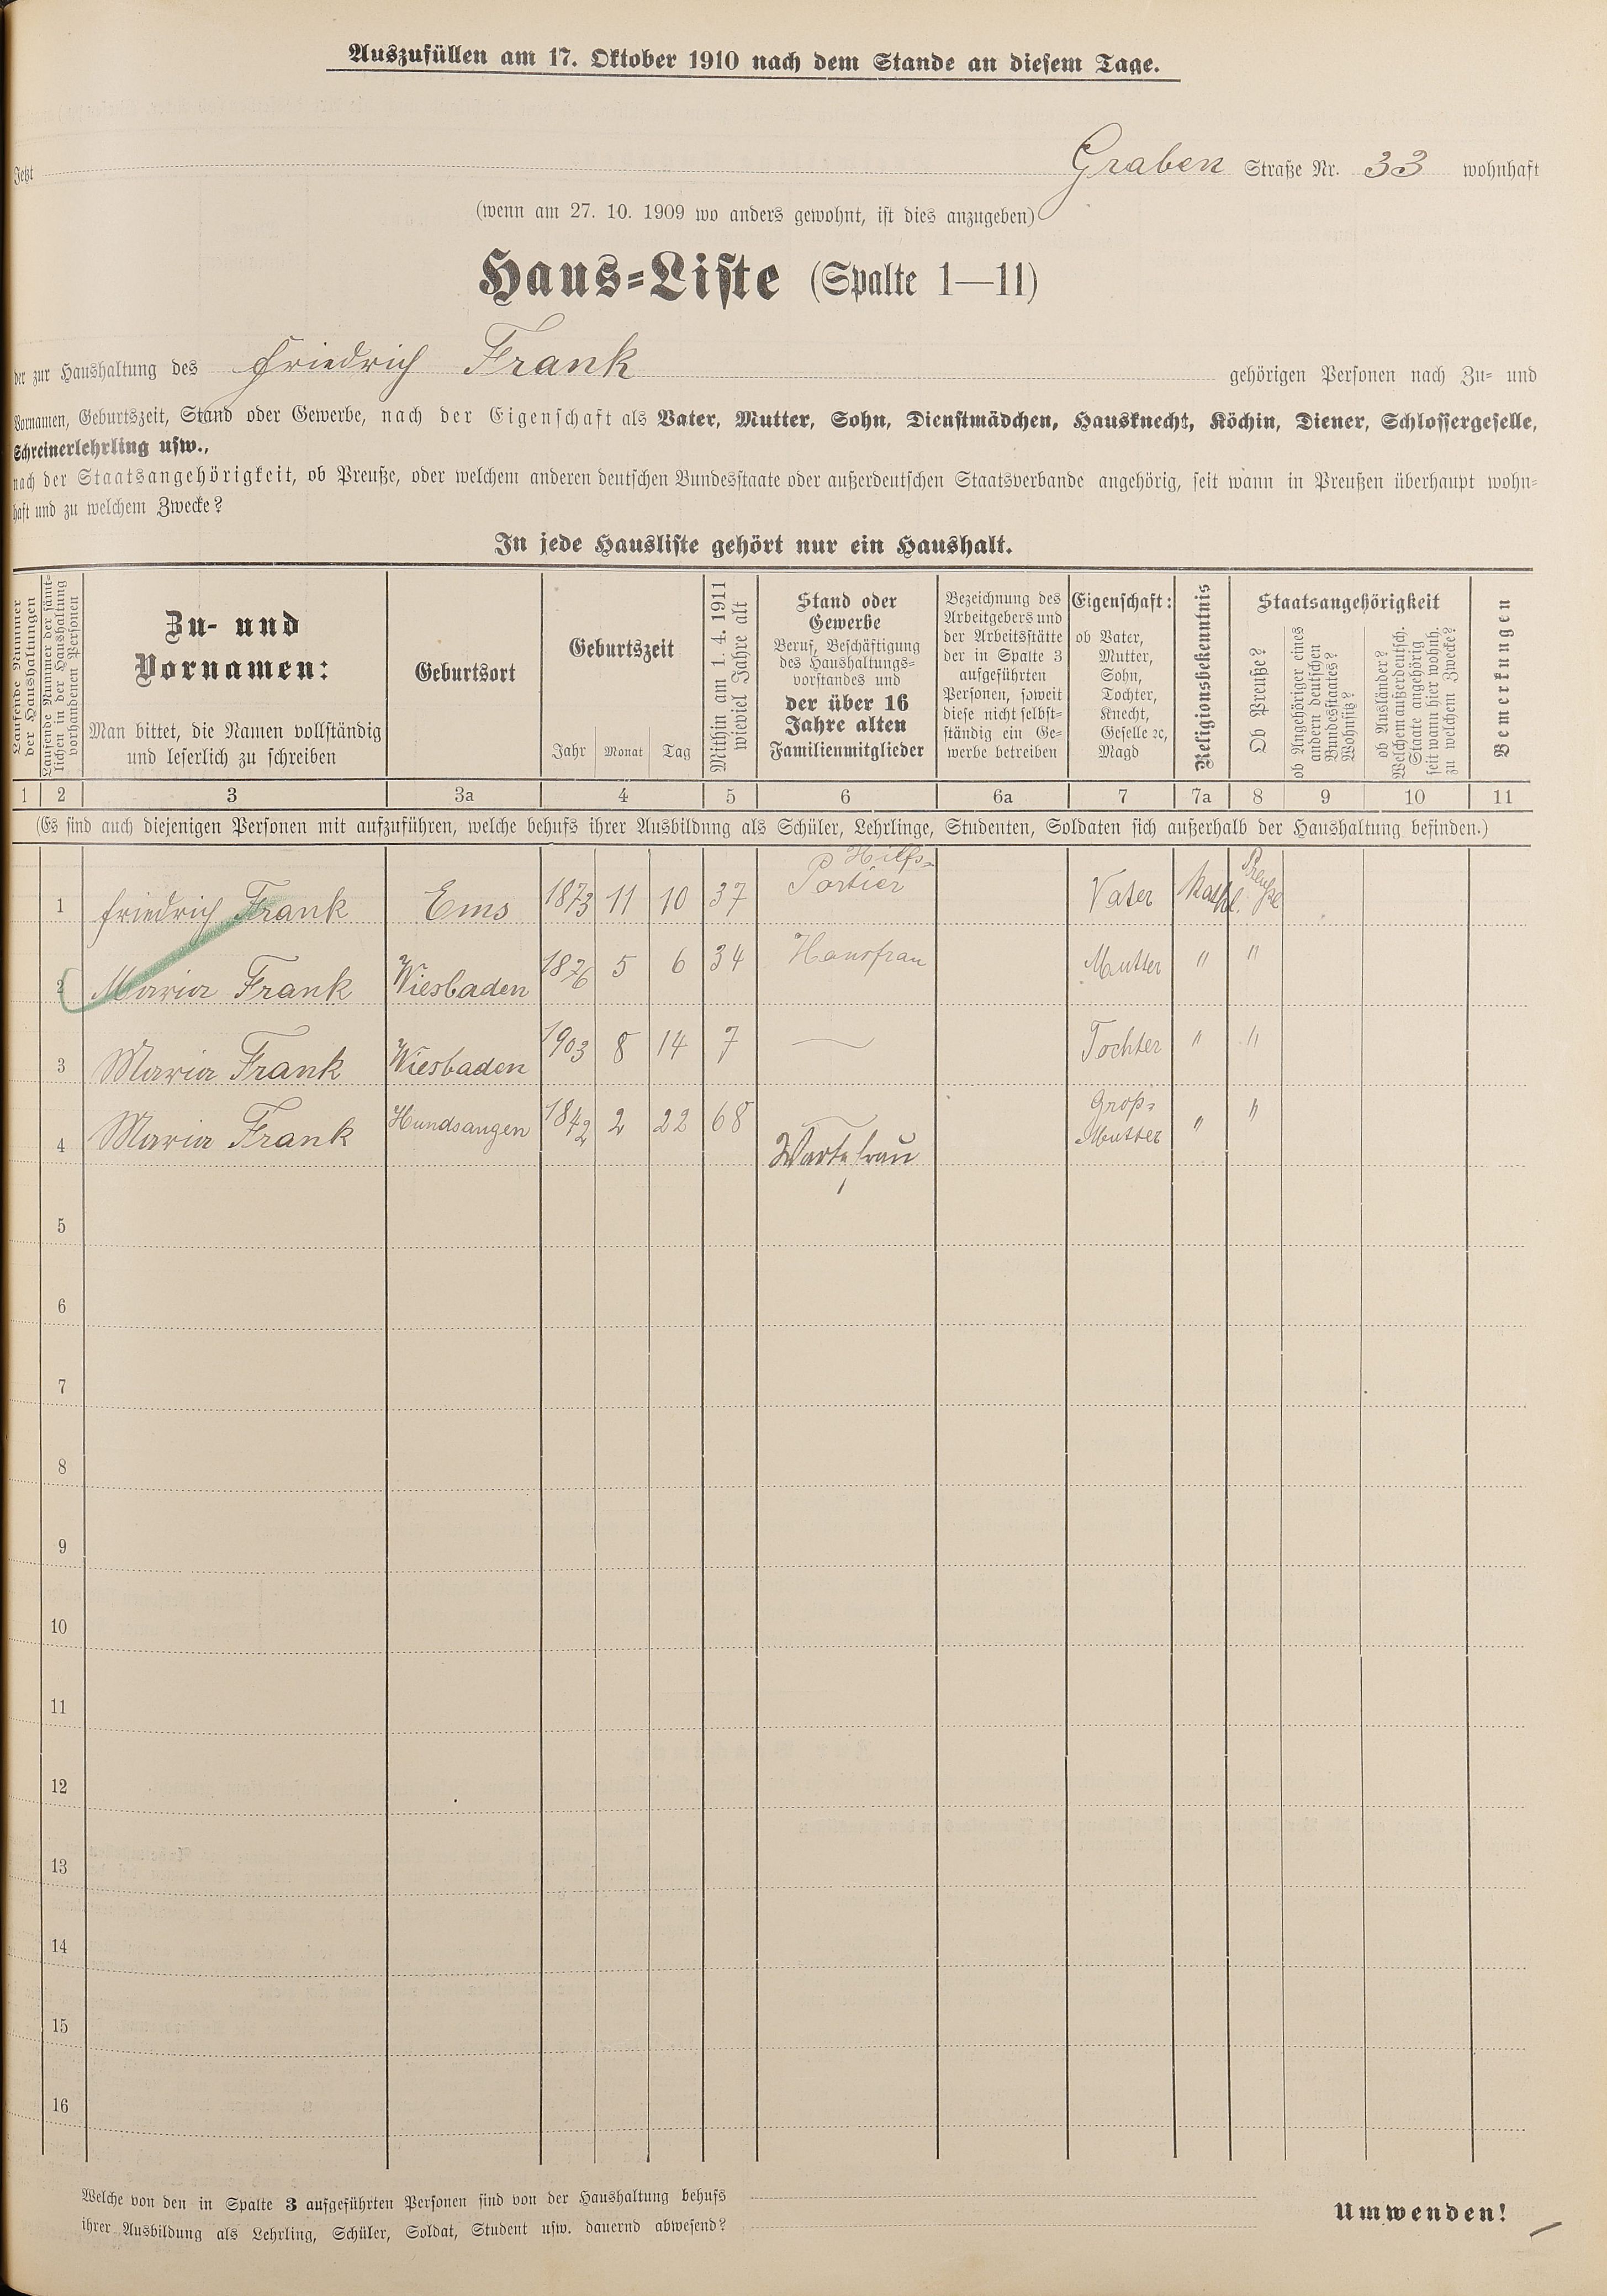 Auszufüllen am 17. Oktober 1910 nach dem Stande an diesem Tage.
Jetzt Graben Straße Nr. 33 wohnhaft
(wenn am 27. 10. 1909 wo anders gewohnt, ist dies anzugeben)
Haus-Liste (Spalte 1—11)
der zur Haushaltung des Friedrich Frank gehörigen Personen nach Zu- und
Vornamen, Geburtszeit, Stand oder Gewerbe, nach der Eigenschaft als Vater, Mutter, Sohn, Dienstmädchen, Hausknecht, Köchin, Diener, Schlossergeselle,
Schreinerlehrling usw.,
nach der Staatsangehörigkeit, ob Preuße, oder welchem anderen deutschen Bundesstaate oder außerdeutschen Staatsverbande angehörig, seit wann in Preußen überhaupt wohn-
haft und zu welchem Zwecke?
In jede Hausliste gehört nur ein Haushalt.
Laufende Nummer
der Haushaltungen
Laufende Nummer der sämt-
lichen in der Haushaltung
vorhandenen Personen
Zu- und
Vornamen:
Man bittet, die Namen vollständig
und leserlich zu schreiben
Geburtsort
Geburtszeit
Jahr Monat Tag
Mithin am 1. 4. 1911
wieviel Jahre alt
Stand oder
Gewerbe
Beruf, Beschäftigung
des Haushaltungs-
vorstandes und
der über 16
Jahre alten
Familienmitglieder
Bezeichnung des
Arbeitgebers und
der Arbeitsstätte
der in Spalte 3
aufgeführten
Personen, soweit
diese nicht selbst-
ständig ein Ge-
werbe betreiben
Eigenschaft:
ob Vater,
Mutter,
Sohn,
Tochter,
Knecht,
Geselle ꝛc,
Magd
Religionsbekenntnis
Staatsangehörigkeit
Ob Preuße?
ob Angehöriger eines
andern deutschen
Bundesstaates?
Wohnsitz?
ob Ausländer?
Welchem außerdeutsch.
Staate angehörig
seit wann hier wohnh.
zu welchem Zwecke?
Bemerkungen
1 2 3 3a 4 5 6 6a 7 7a 8 9 10 11
(Es sind auch diejenigen Personen mit aufzuführen, welche behufs ihrer Ausbildung als Schüler, Lehrlinge, Studenten, Soldaten sich außerhalb der Haushaltung befinden.)
Hilfs-
1 Friedrich Frank Ems 1873 11 10 37 Portier Vater Kathl. Preuße
2 Maria Frank Wiesbaden 1876 5 6 34 Hausfrau Mutter " "
3 Maria Frank Wiesbaden 1903 8 14 7 — Tochter " "
4 Maria Frank Hundsangen 1842 2 22 68 — Groß- Mutter " "
Wartefrau
5
6
7
8
9
10
11
12
13
14
15
16
Welche von den in Spalte 3 aufgeführten Personen sind von der Haushaltung behufs
ihrer Ausbildung als Lehrling, Schüler, Soldat, Student usw. dauernd abwesend?
Umwenden!